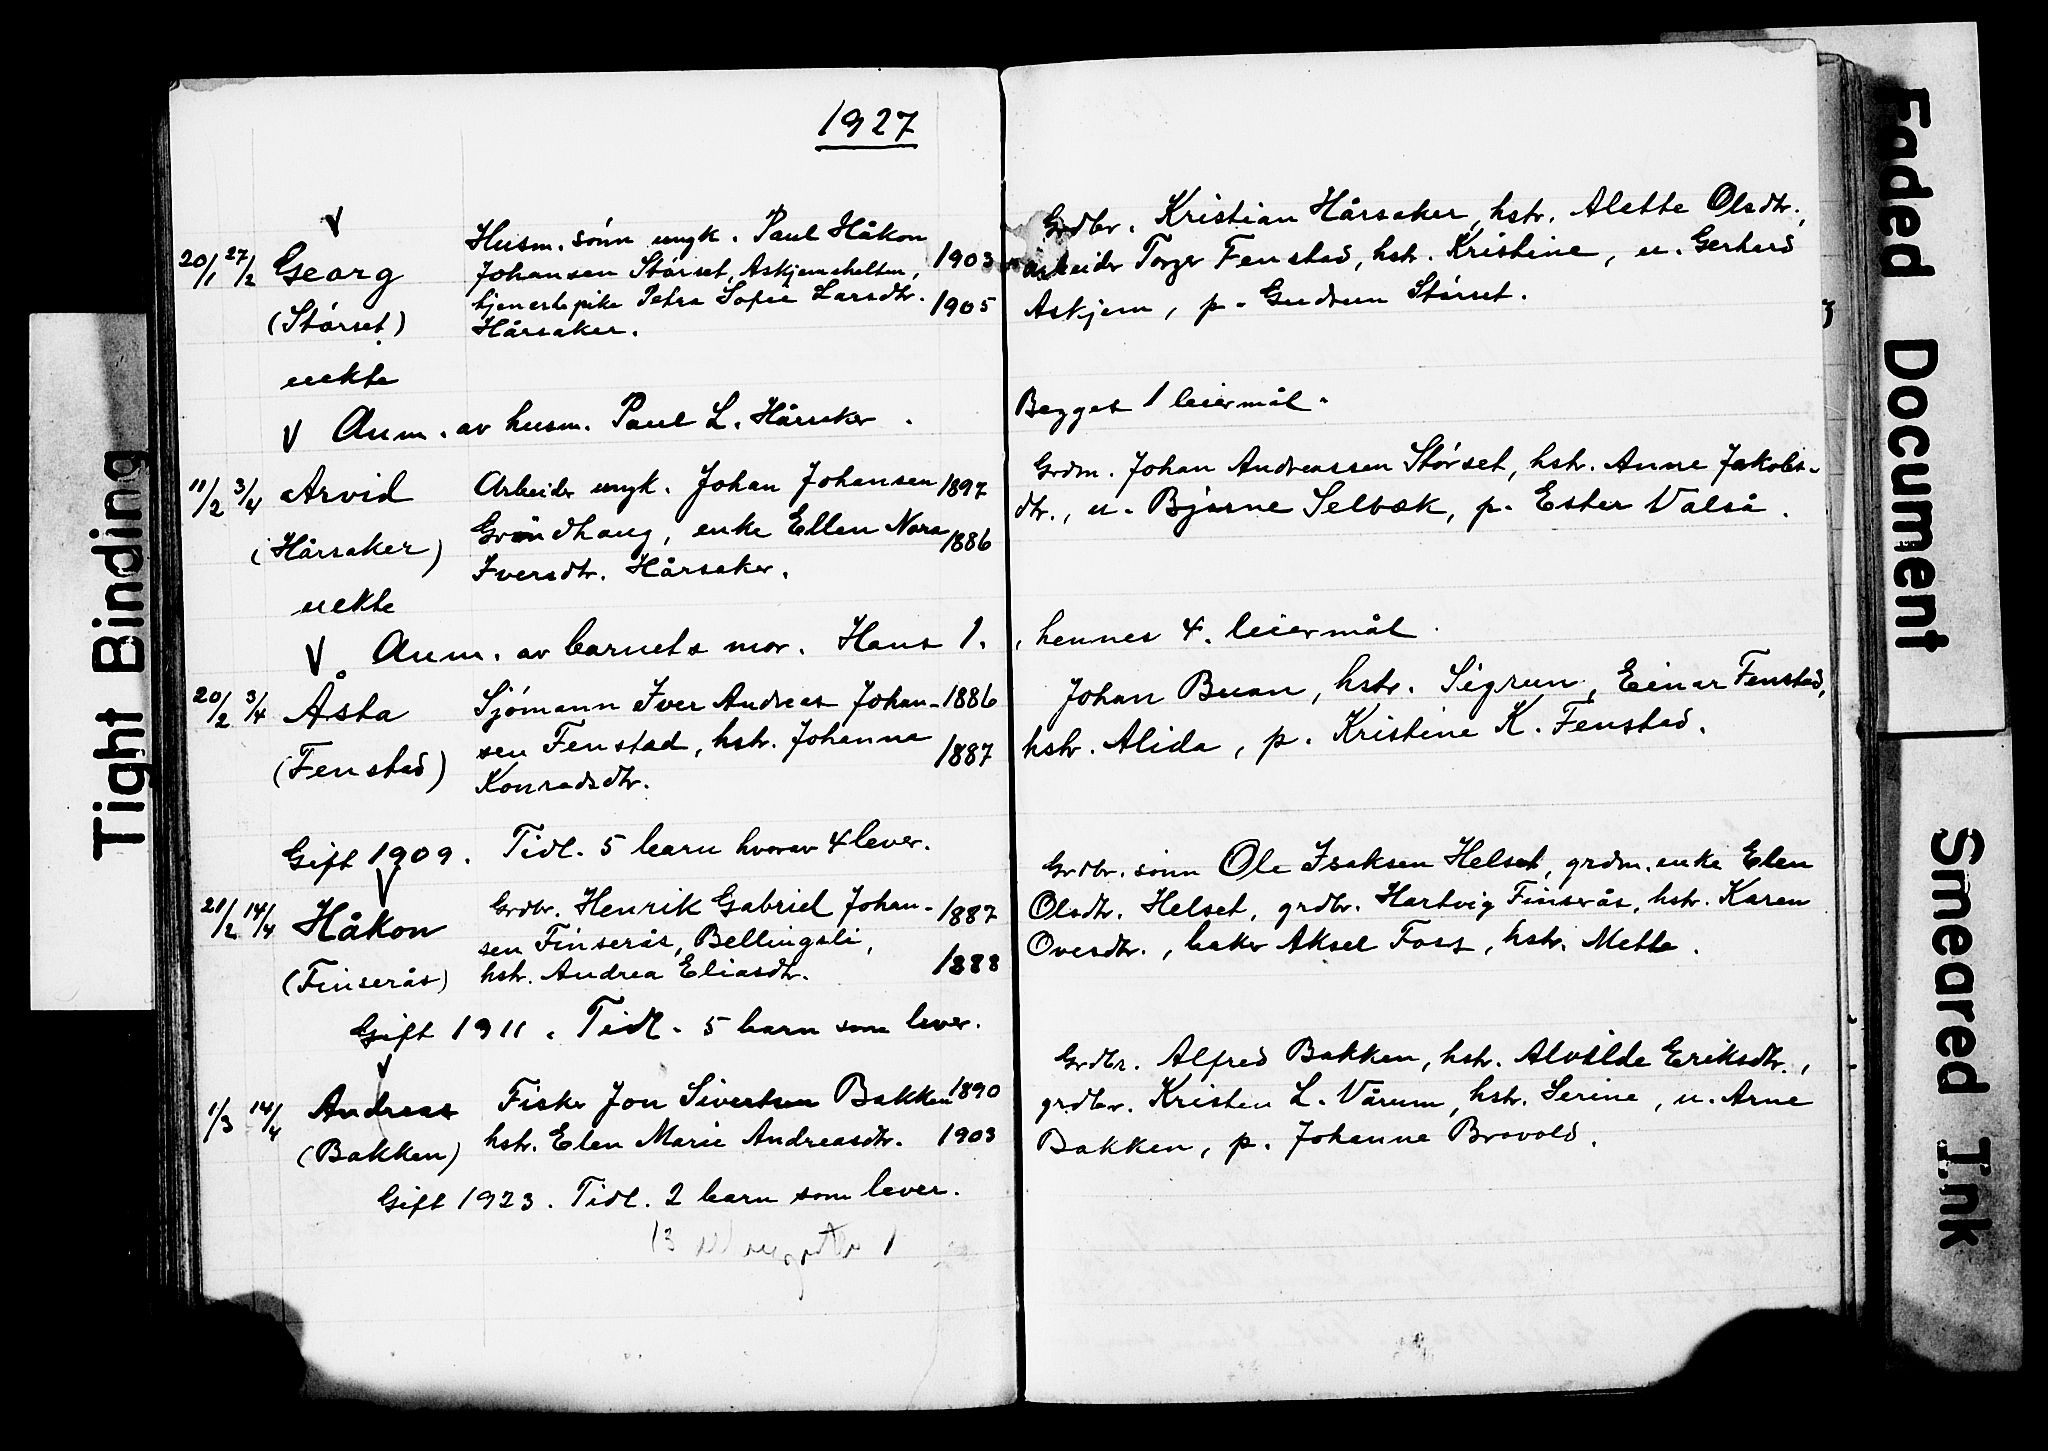 1927
20/1 27/2 Georg
(Størset)
uekte
Husm. sønn ungk. Paul Håkon
Johansen Størset, Askjemshelten,
tjenestepike Petra Sofie Larsdtr.
Hårsaker.
1903
1905
Grdbr. Kristian Hårsaker, hstr. Alette Olsdtr.,
arbeider Torger Fenstad, hstr. Kristine, u. Gerhard
Askjem, p. Gudrun Størset.
V Anm. av husm. Paul L. Hårsaker.
Begges 1 leiermål.
11/2 3/4 Arvid
(Hårsaker)
uekte
Arbeider ungk. Johan Johansen
Gröndhaug, enke Ellen Nora
Iversdtr. Hårsaker.
1897
1886
Grdm. Johan Andreassen Størset, hstr. Anne Jakobs-
dtr., u. Bjarne Selbæk, p. Ester Valså.
V Anm. av barnets mor. Hans 1.
, hennes 4. leiermål.
20/2 3/4 Åsta
(Fenstad)
Sjømann Iver Andreas Johan-
sen Fenstad, hstr. Johanna
Konradsdtr.
1886
1887
Johan Buan, hstr. Sigrun, Einar Fenstad,
hstr. Alida, p. Kristine K. Fenstad.
Gift 1909. Tidl. 5 barn hvorav 4 lever.
21/2 14/4 Håkon
(Finserås)
Grdbr. Henrik Gabriel Johan-
sen Finserås, Bellingsli,
hstr. Andrea Eliasdtr.
1887
1888
Grdbr. sønn Ole Isaksen Helset, grdm. enke Elen
Olsdtr. Helset, grdbr. Hartvig Finserås, hstr. Karen
Ovesdtr., baker Aksel Foss, hstr. Mette.
Gift 1911. Tidl. 5 barn som lever.
1/3 14/4 Andreas
(Bakken)
Fisker Jon Sivertsen Bakken
hstr. Elen Marie Andreasdtr.
1890
1903
Grdbr. Alfred Bakken, hstr. Alvilde Eriksdtr.,
grdbr. Kristen L. Vårum, hstr. Serine, u. Arne
Bakken, p. Johanne Brovold.
Gift 1923. Tidl. 2 barn som lever.
Tight Binding
Faded Document
Smeared Ink